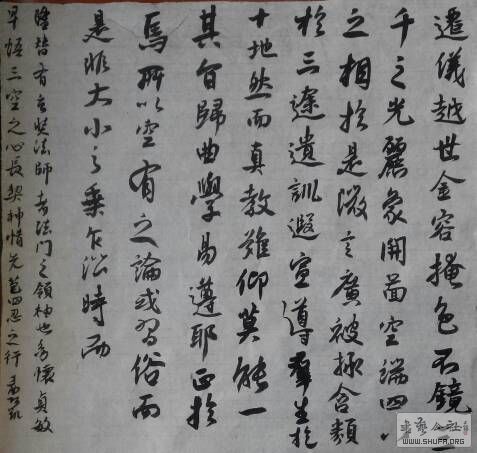 遷儀越世金容掩色不鏡三
千之光麗象開啚空端四八
之相於是微言廣被拯含類
於三途遺訓遐宣導羣生於
十地然而真教難仰莫能一
其旨歸曲學易遵耶正於
焉所以空有之論或習俗而
是非大小之乘乍沿時而
隆替有玄奘法師者法門之領袖也幼懷貞敏
早悟三空之心長契神情先苞四忍之行
书艺公社
WWW.SHUFA.ORG